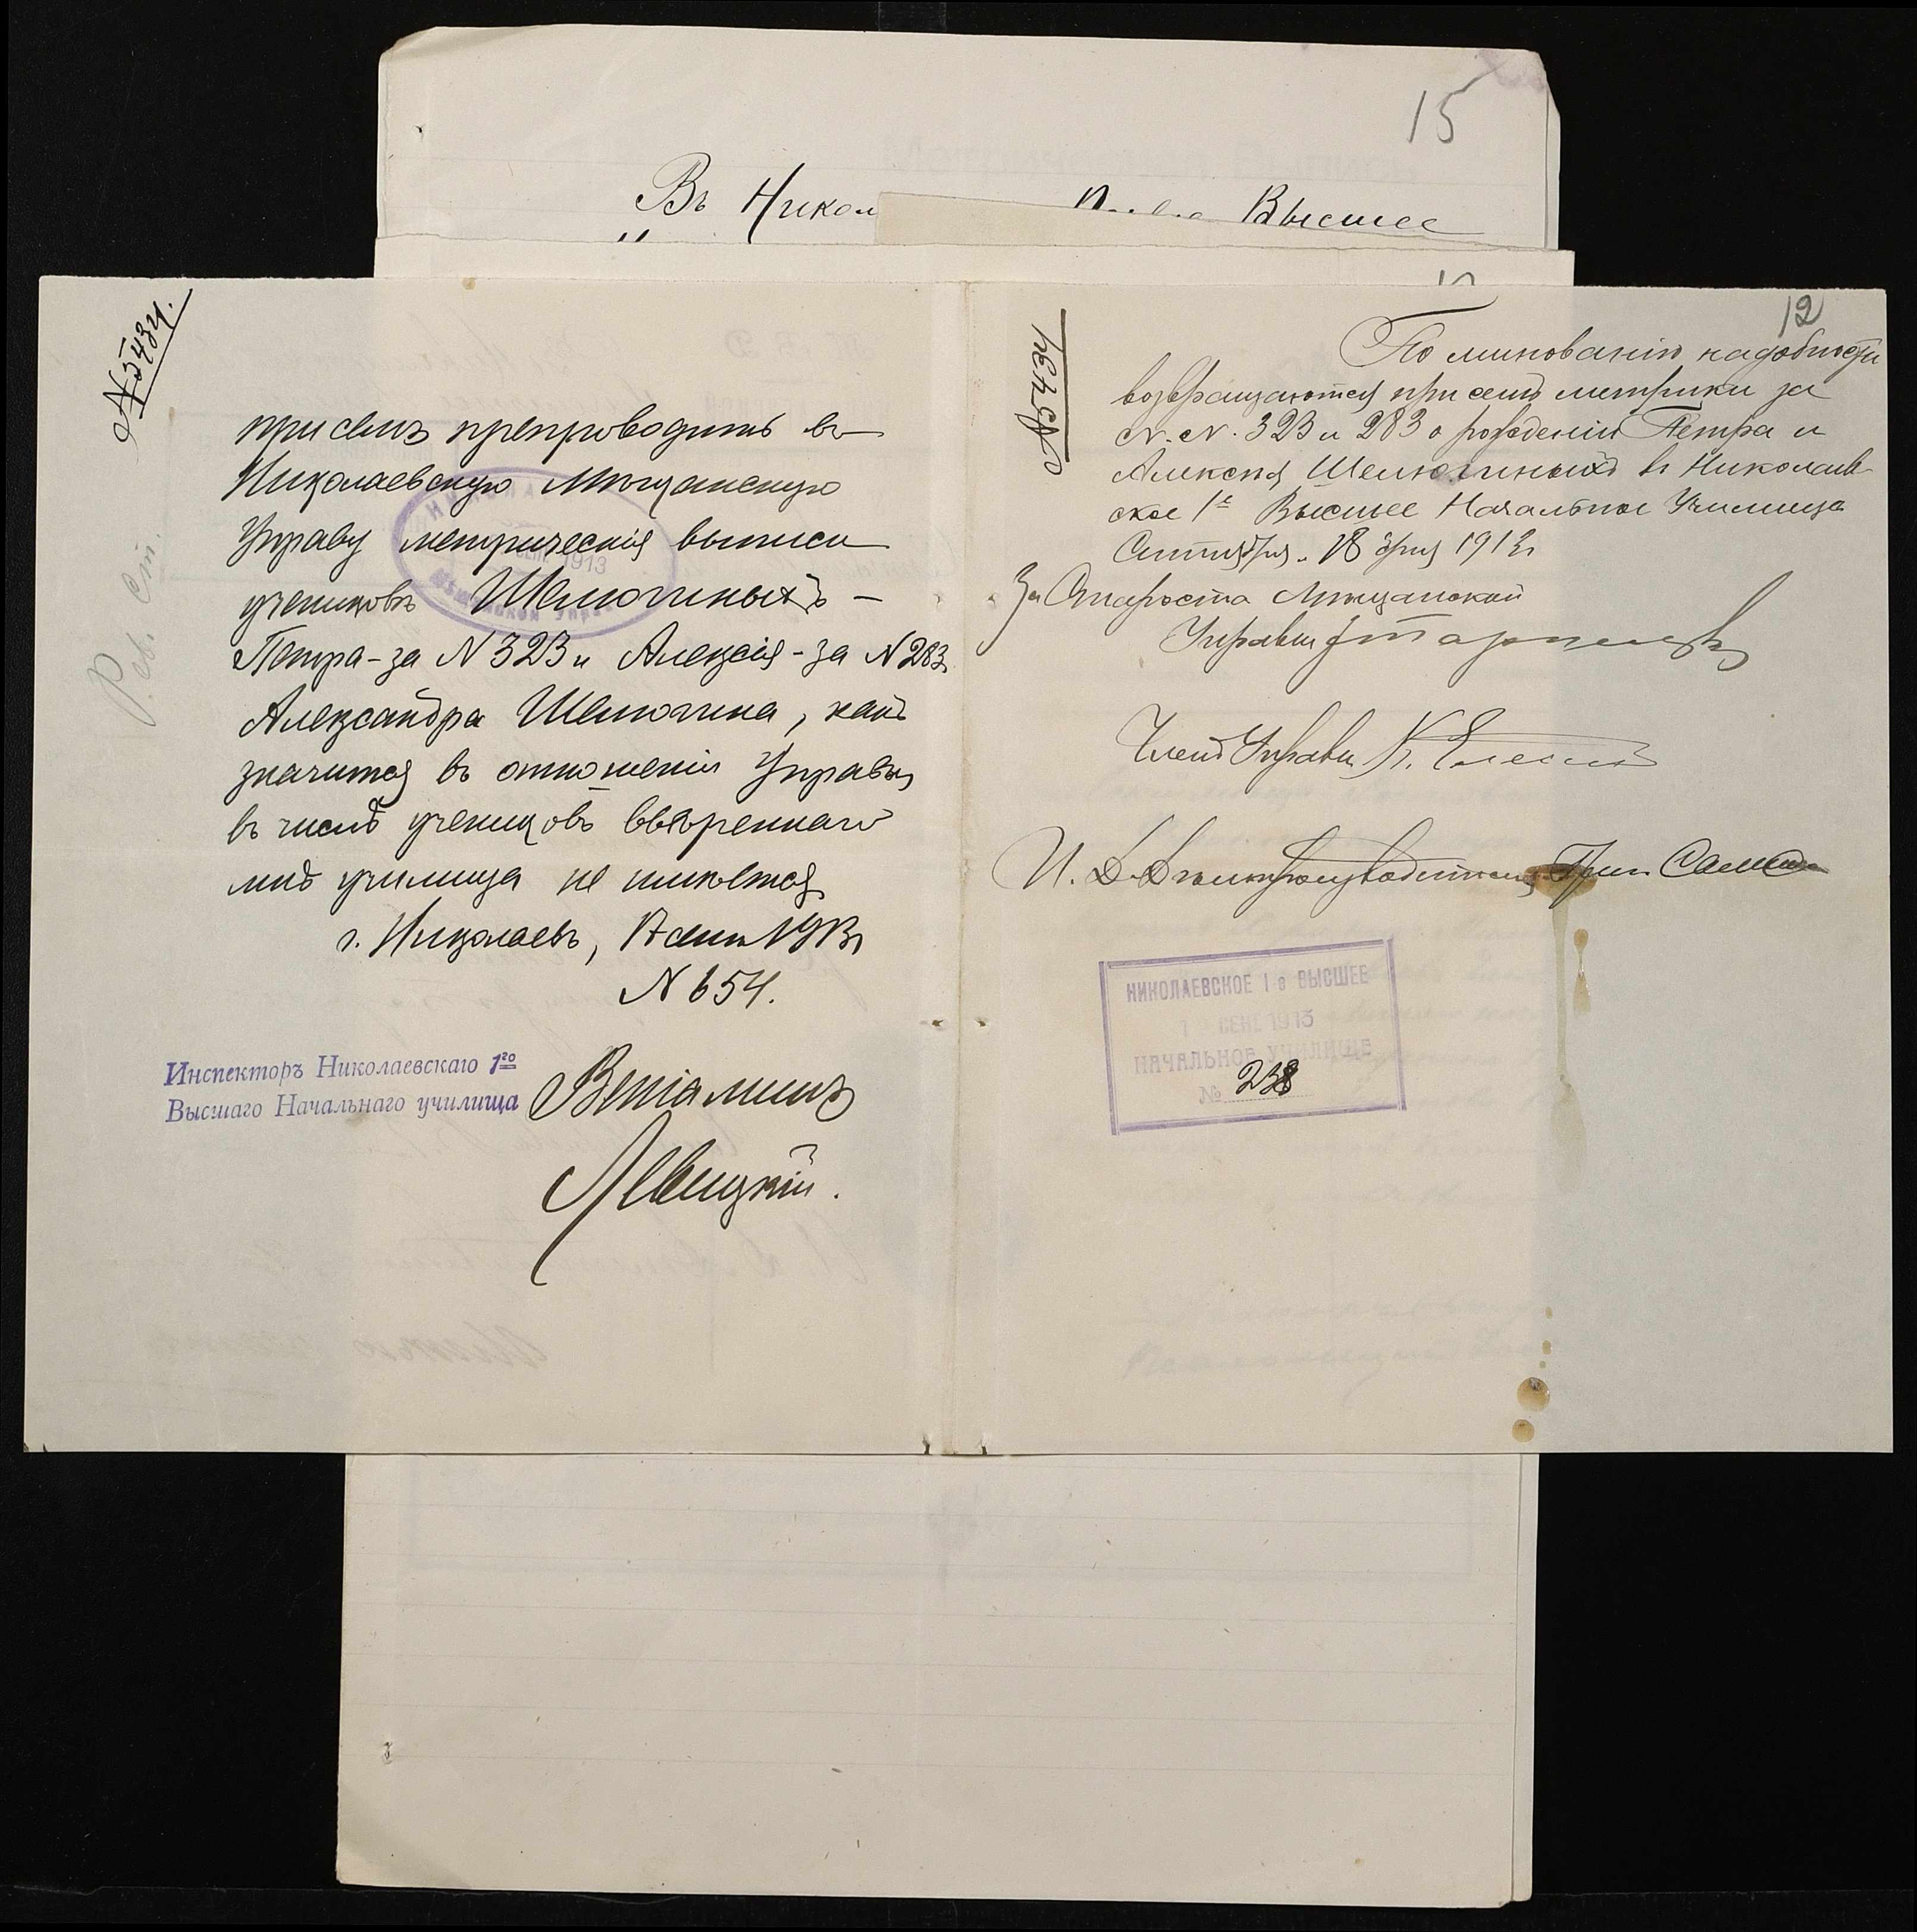 15
Въ Никол Высшее
№ 5434.
Рев. Ст.
при семъ препроводить въ
Николаевскую Мѣщанскую
Управу метрическія выписи
учениковъ Шелюгиныхъ –
Петра – за N 323 и Алексія – за N 283.
Александра Шелюгина, какъ
значится въ отношеніи Управы,
въ числѣ учениковъ ввѣреннаго
мнѣ училища не имѣется.
г. Николаевъ, 17 сент. 1913 г.
N 654.
Инспекторъ Николаевскаго 1го
Высшаго Начальнаго училища
Веніаминъ
Левицкій.
12
№ 5434
По минованіи надобности
возвращаются при семъ метрики за
N. N. 323 и 283 о рожденіи Петра и
Алексѣя Шелюгиныхъ въ Николаев-
ское 1е Высшее Начальное Училище
Сентября 18 дня 1913 г.
За Староста Мѣщанской
Управы
Членъ Управы К.
И. Д. Дѣлопроизводителя
НИКОЛАЕВСКОЕ 1-е ВЫСШЕЕ
СЕНТ 1913
НАЧАЛЬНОЕ УЧИЛИЩЕ
№ 238